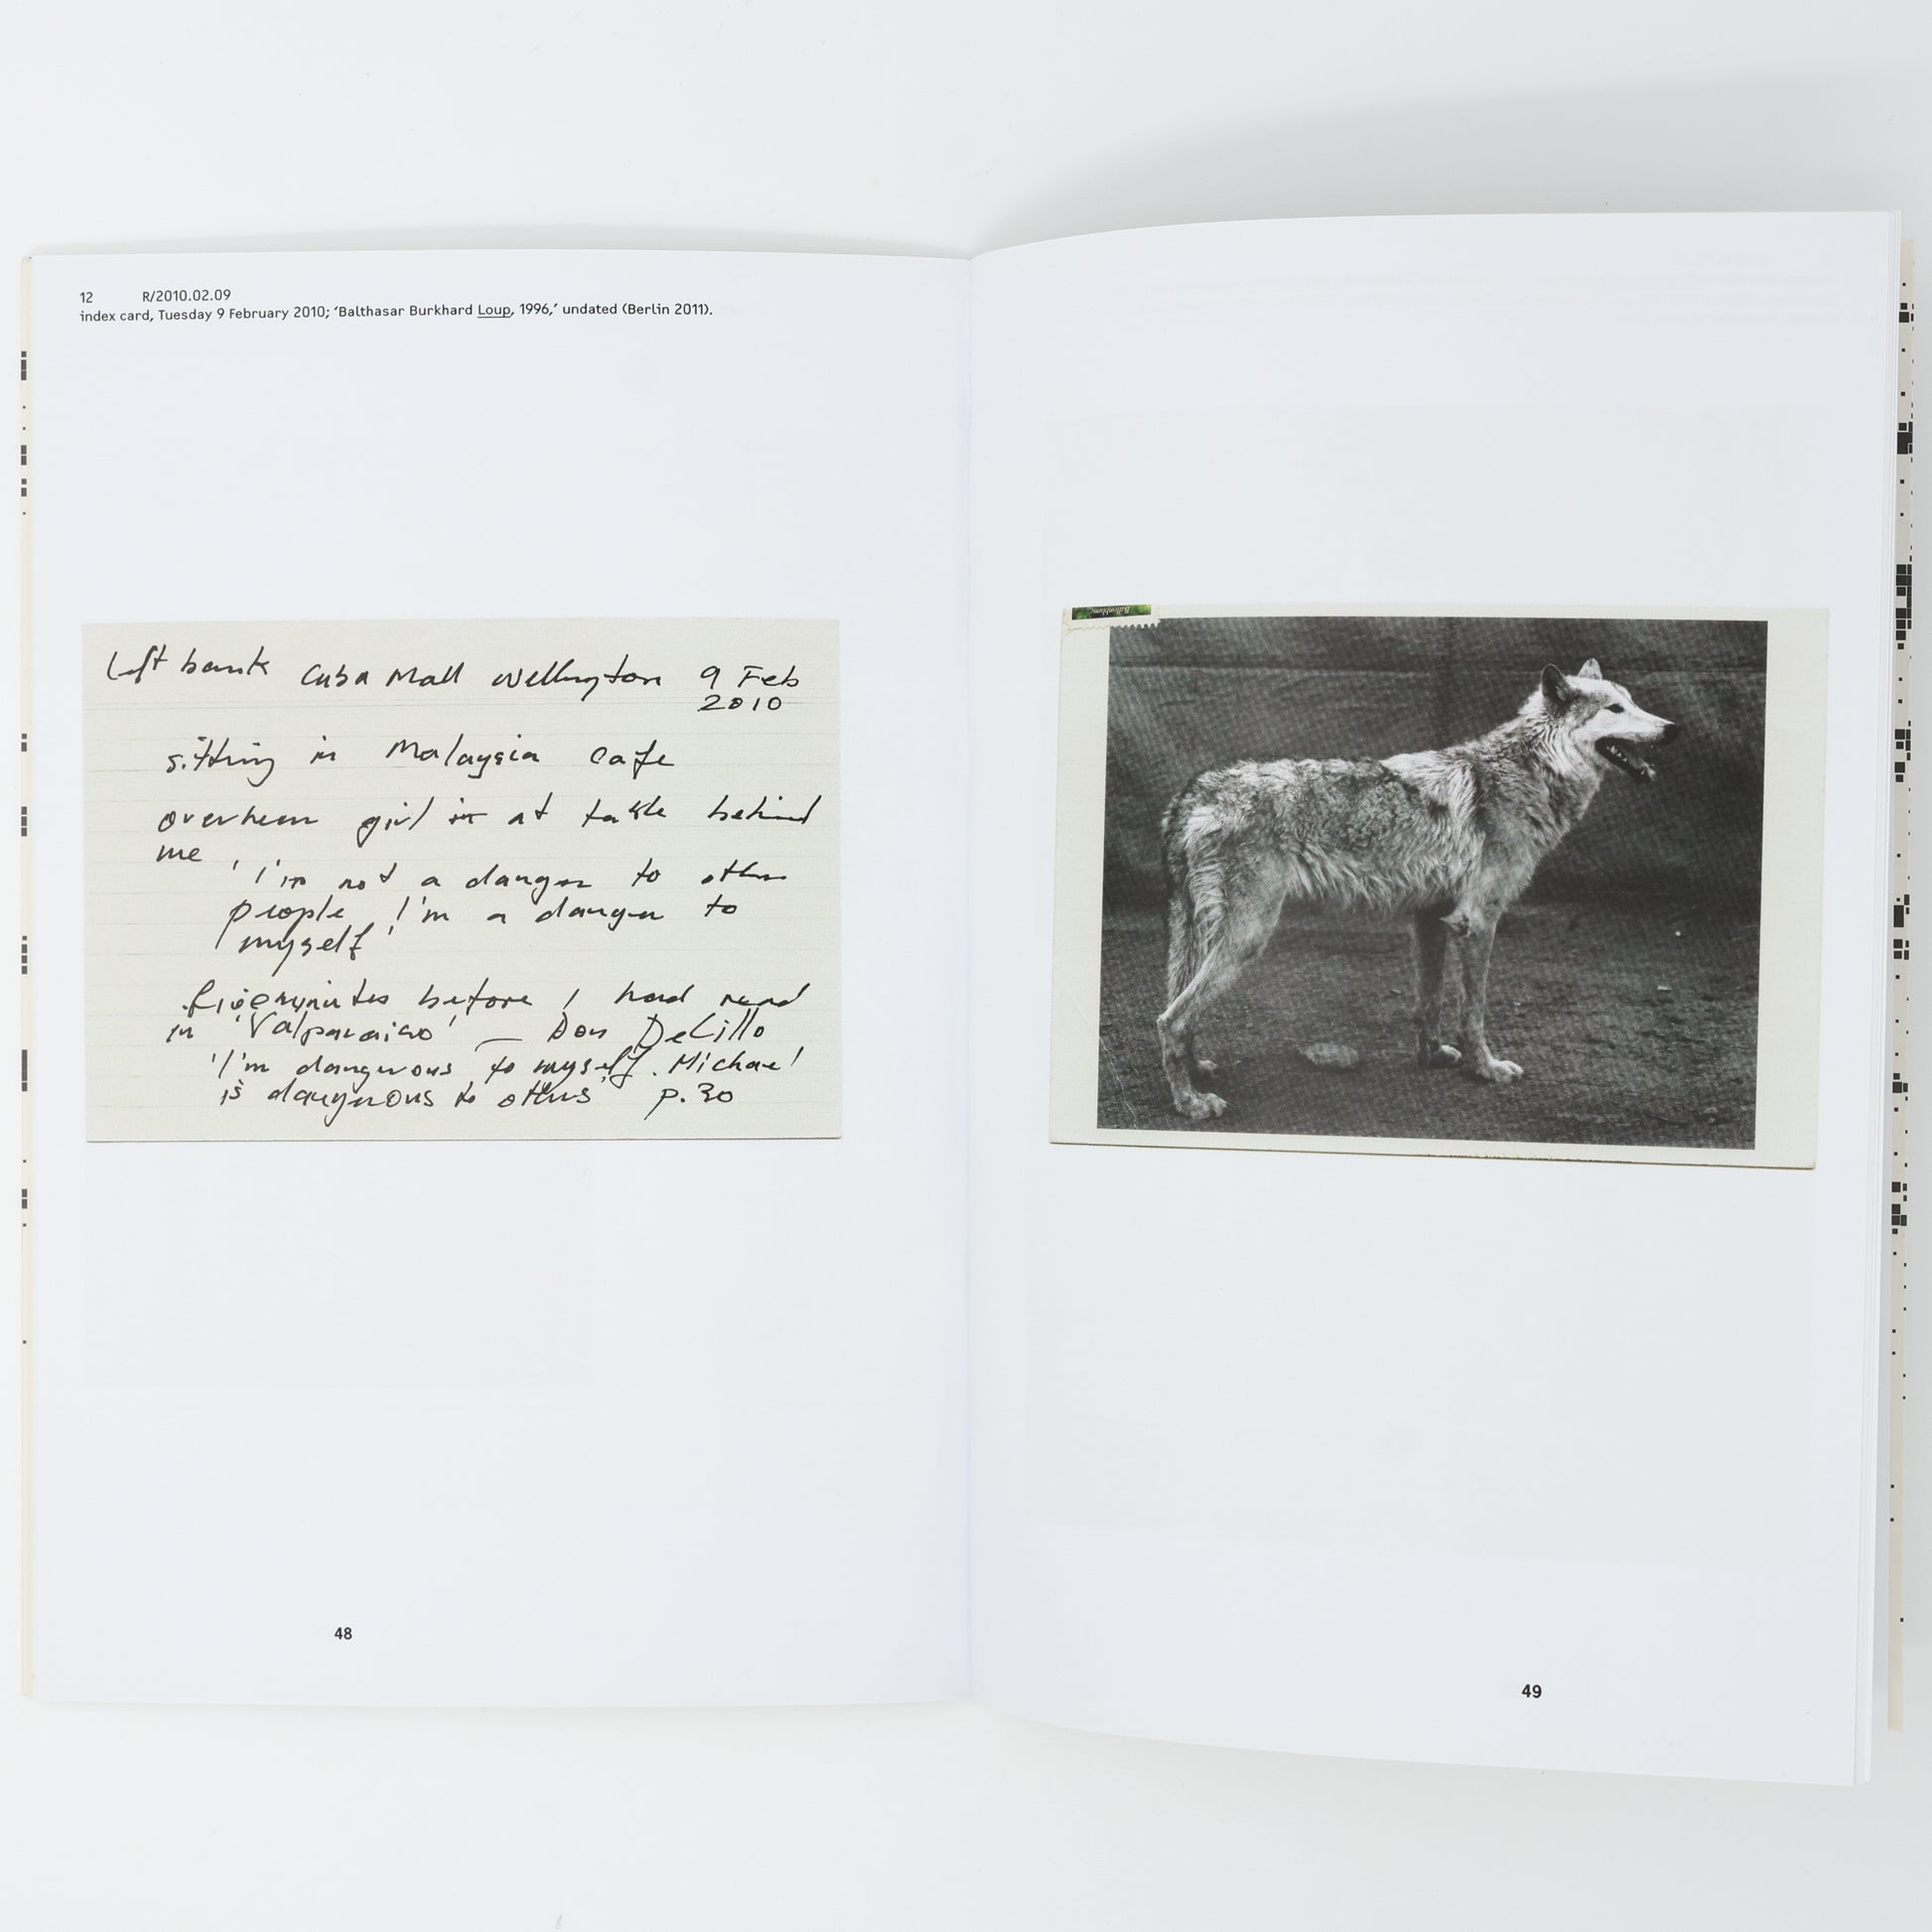 12 R/2010.02.09
index card, Tuesday 9 February 2010; ‘Balthasar Burkhard Loup, 1996,’ undated (Berlin 2011).
left bank Cuba Mall Wellington 9 Feb
2010
sitting in Malaysia Cafe
overhear girl in at table behind
me
'I'm not a danger to other
people, I'm a danger to
myself'
five minutes before I had read
in 'Valparaiso' — Don DeLillo
'I'm dangerous to myself. Michael
is dangerous to others' p.30
48
49